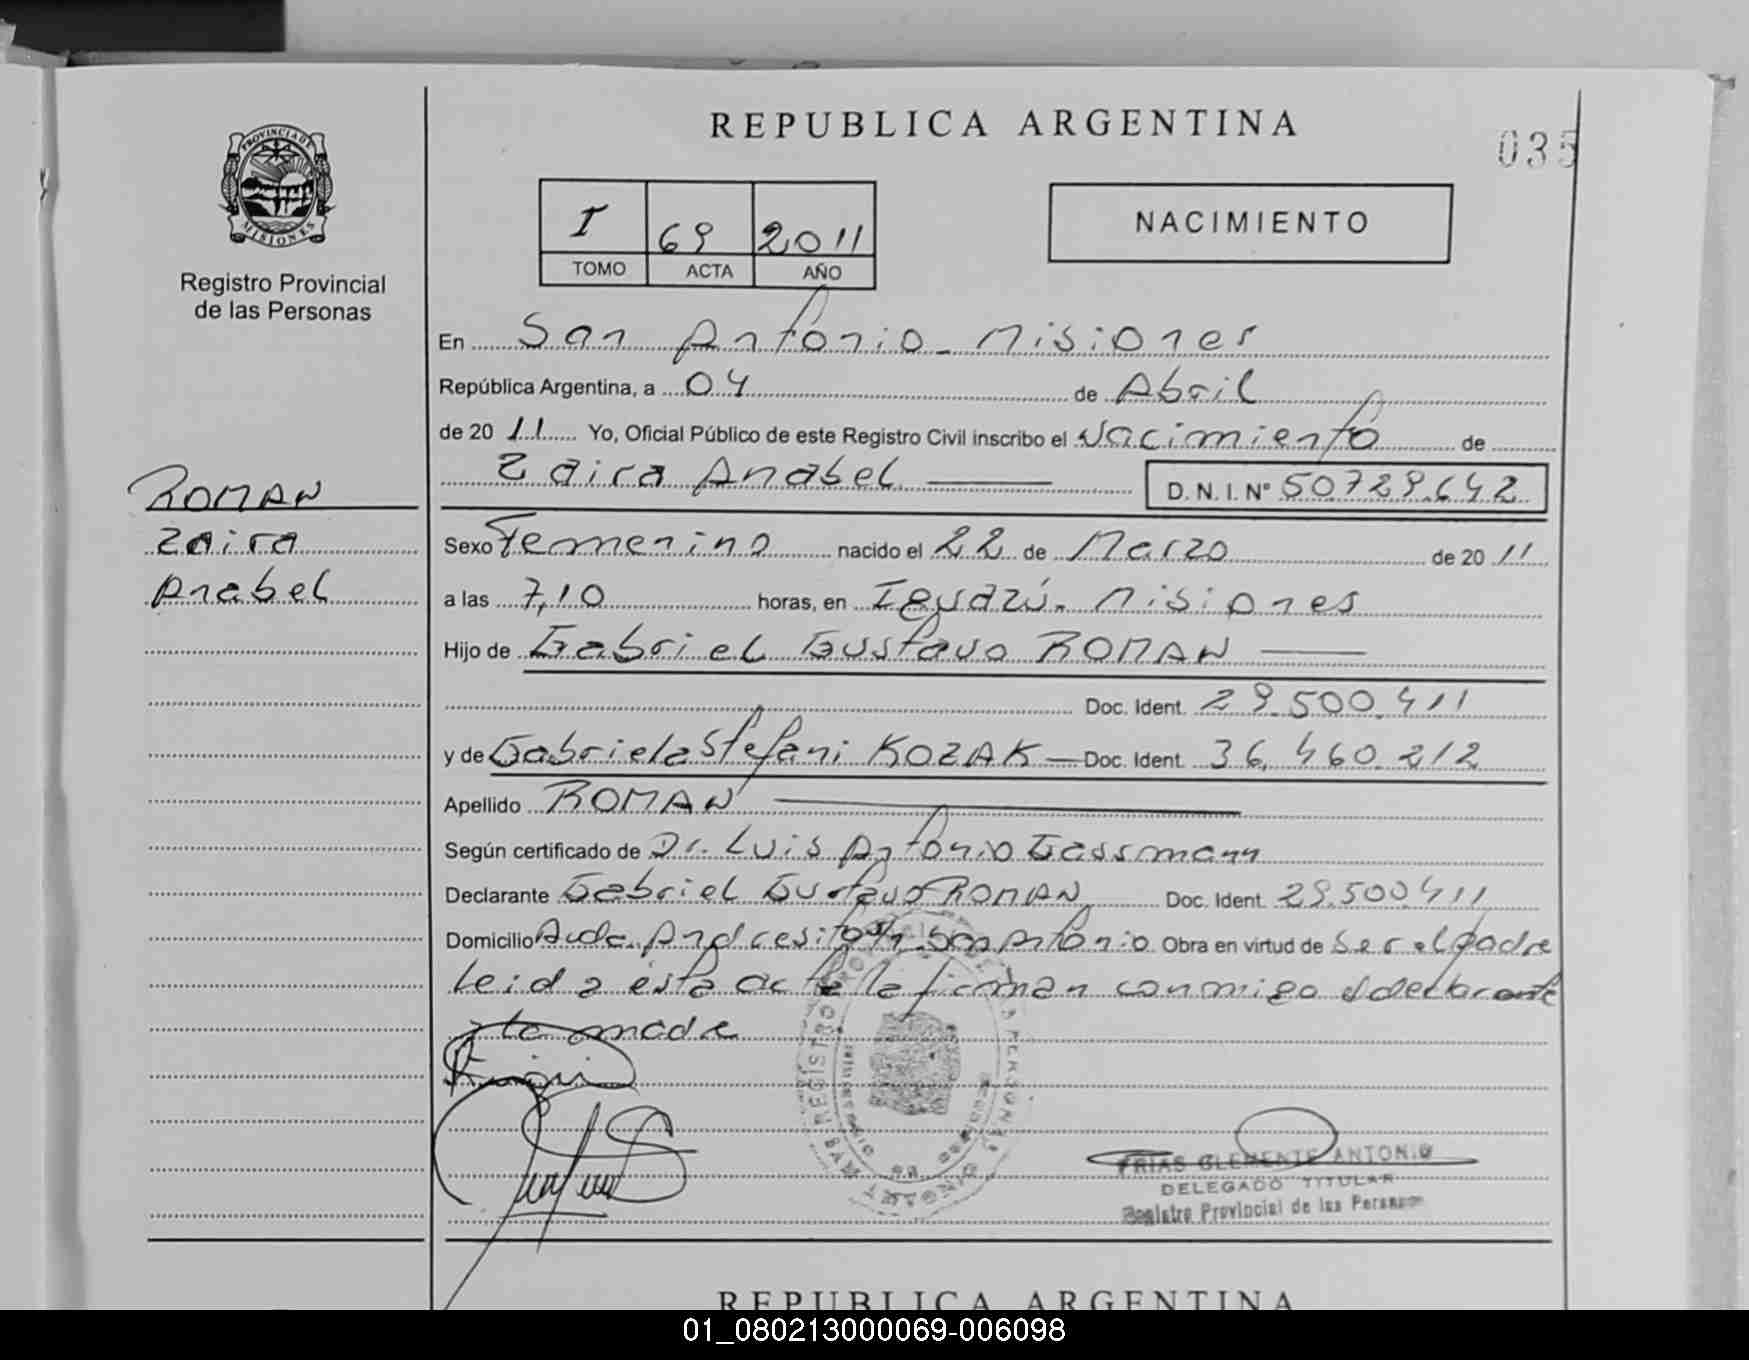 REPUBLICA ARGENTINA
035
PROVINCIA DE MISIONES
Registro Provincial
de las Personas
I 69 2011
TOMO ACTA AÑO
NACIMIENTO
En San Antonio - Misiones
República Argentina, a 04 de Abril
de 20 11 Yo, Oficial Público de este Registro Civil inscribo el Nacimiento de
Zaira Anabel D. N. I. Nº 50.729.642
ROMAN
Zaira
Anabel
Sexo Femenino nacido el 22 de Marzo de 20 11
a las 7,10 horas, en Iguazú - Misiones
Hijo de Gabriel Gustavo ROMAN
Doc. Ident. 29.500.411
y de Gabriela Stefani KOZAK Doc. Ident. 36.460.212
Apellido ROMAN
Según certificado de Dr. Luis Antonio Gassmann
Declarante Gabriel Gustavo ROMAN Doc. Ident. 29.500.411
Domicilio Avda. Andresito San Antonio Obra en virtud de Ser el padre
Leida ésta acta la firman conmigo el declarante
y la madre
FRIAS CLEMENTE ANTONIO
DELEGADO TITULAR
Registro Provincial de las Personas
REPUBLICA ARGENTINA
01_080213000069-006098